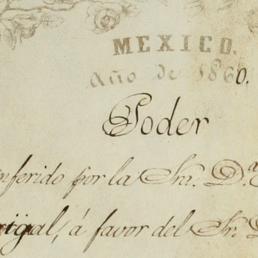 MEXICO.
Año de 1860.
Poder
nferido por la Sra. D.ª
igal, á favor del Sr. D